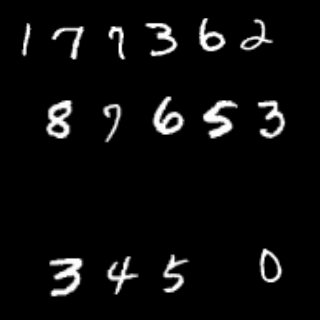 1 7 7 3 6 2
8 7 6 5 3
3 4 5 0